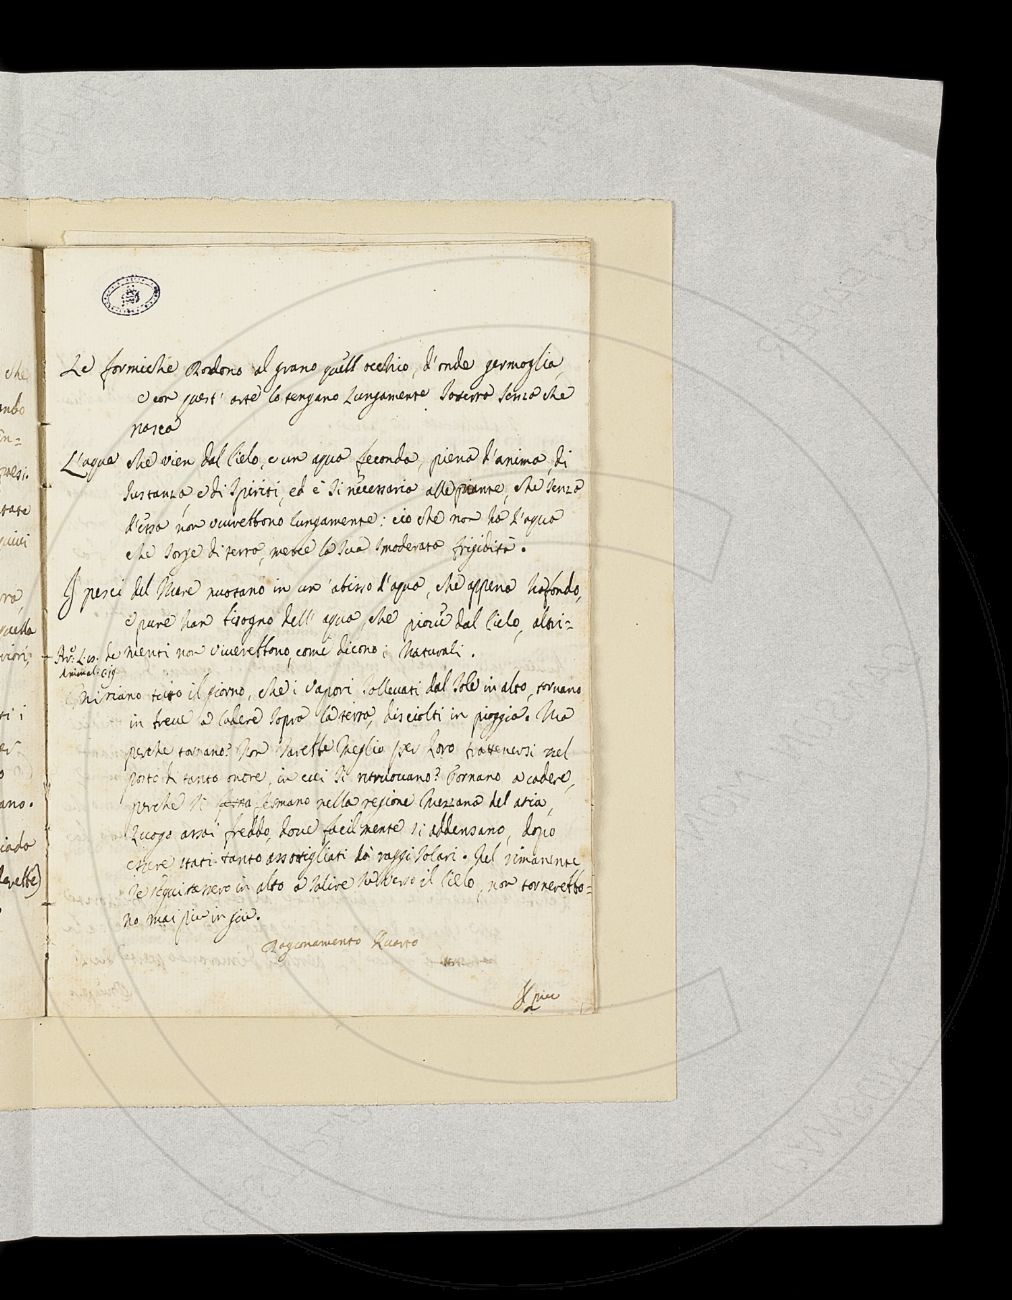 Le formiche Rodono al grano quell'occhio, d'onde germoglia,
e con quest' arte lo tengano Lungamente Soterra Senza che
nasca
L'aqua che vien dal Cielo, e un aqua feconda, piena d'anima, di
Sustanza, e di Spiriti, ed è Si necessaria alle piante, che Senza
d'essa non viverebbono lungamente: ciò che non ha l'aqua
che Sorge di terra, mercè la Sua Smoderata frigidità.
I pesci del Mare nuotano in un'abisso d'aqua, che appena ha fondo,
e pure han bisogno dell' aqua, che piove dal Cielo, altri-
menti non viverebbono, come dicono i Naturali.
Ar: L: 8. de
Animal: c. 19
Miriano tutto il giorno, che i Vapori Sollevati dal Sole in alto, tornano
in breve a Cadere Sopra la terra, disciolti in pioggia. Ma
perche tornano? Non Sarebbe Meglio per Loro trattenersi nel
posto di tanto onore, in cui Si ritruovano? Tornano a cadere,
perche Si fermano nella regione Mezzana del aria,
Luogo assai freddo, dove facilmente Si addensano, dopo
essere stati tanto assottigliati da raggi Solari. Nel rimanente
Se Seguitassero in alto a Salire Su verso il Cielo, non tornerebbo-
no mai piu in giu.
Ragionamento Quarto